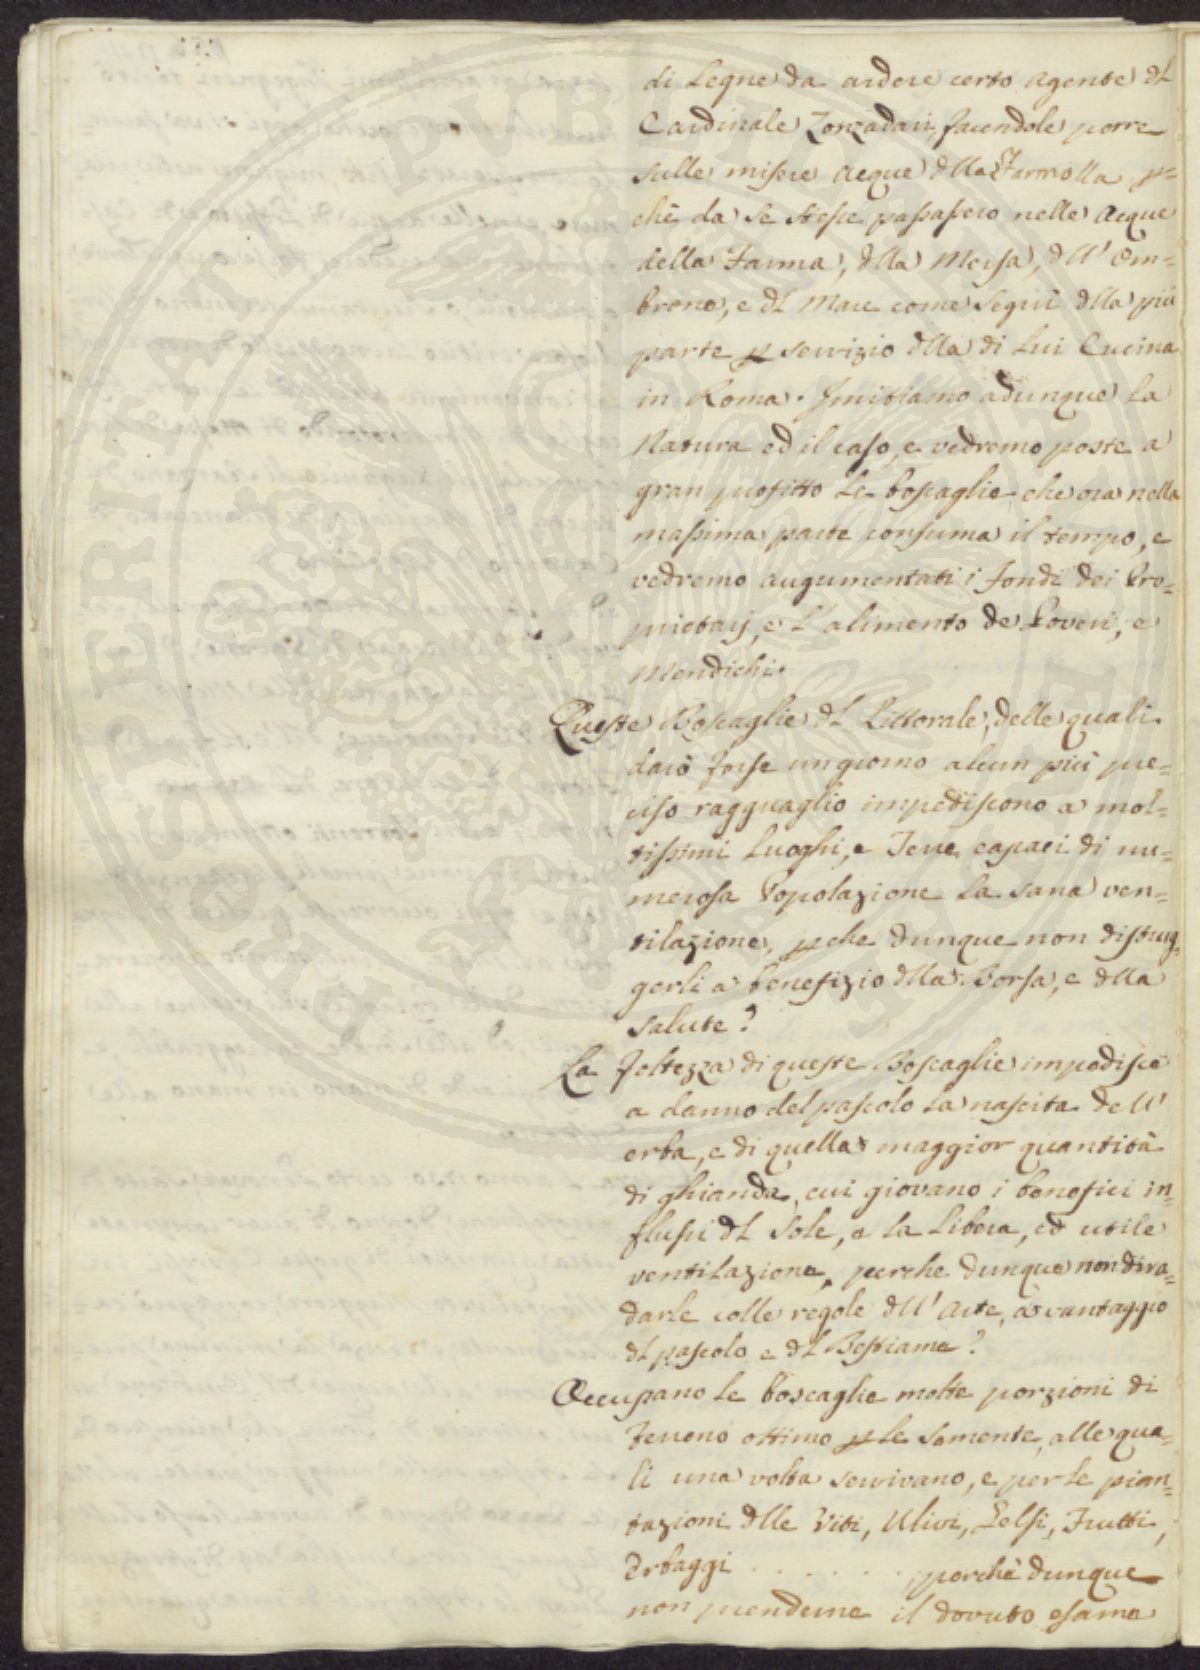 di Legne da ardere certo Agente dl
Cardinale Zonzadari, facendole porre
sulle misere Acque dlla Farmolla p=
chè da se stesse passassero nelle Acque
della Farma, dlla Mersa, dll' Om=
brone, e dl Mare come seguì dlla più
parte p servizio dlla di Lui Cucina
in Roma. Imitiamo adunque La
Natura ed il caso, e vedremo poste a
gran profitto Le boscaglie che ora nella
massima parte consuma il tempo, e
vedremo augumentati i fondi dei Pro=
prietarj, e L'alimento de Poveri, e
Mendichi.
Queste Boscaglie dl Littorale, delle quali
darò forse un giorno alcun più pre=
ciso ragguaglio impediscono a mol=
tissimi Luoghi, e Terre capaci di nu=
merosa Popolazione La sana ven=
tilazione, pche dunque non distrug=
gerli a benefizio dlla Borsa, e dlla
salute?
La foltezza di queste Boscaglie impedisce
a danno del pascolo La nascita dell'
erba, e di quella maggior quantità
di ghianda, cui giovano i benefici in=
flussi dl Sole, e La Libera, ed utile
ventilazione, perche dunque non dira=
darle colle regole dll' Arte, a vantaggio
dl pascolo e dl Bestiame?
Occupano Le boscaglie molte porzioni di
Terreno ottimo p Le Semente, alle qua=
li una volta servivano, e per Le pian=
tazioni dlle Viti, Ulivi, Gelsi, Frutti,
Erbaggi . . . . . . perchè dunque
non prenderne il dovuto esame
PROSPERITATI PUBLICAE